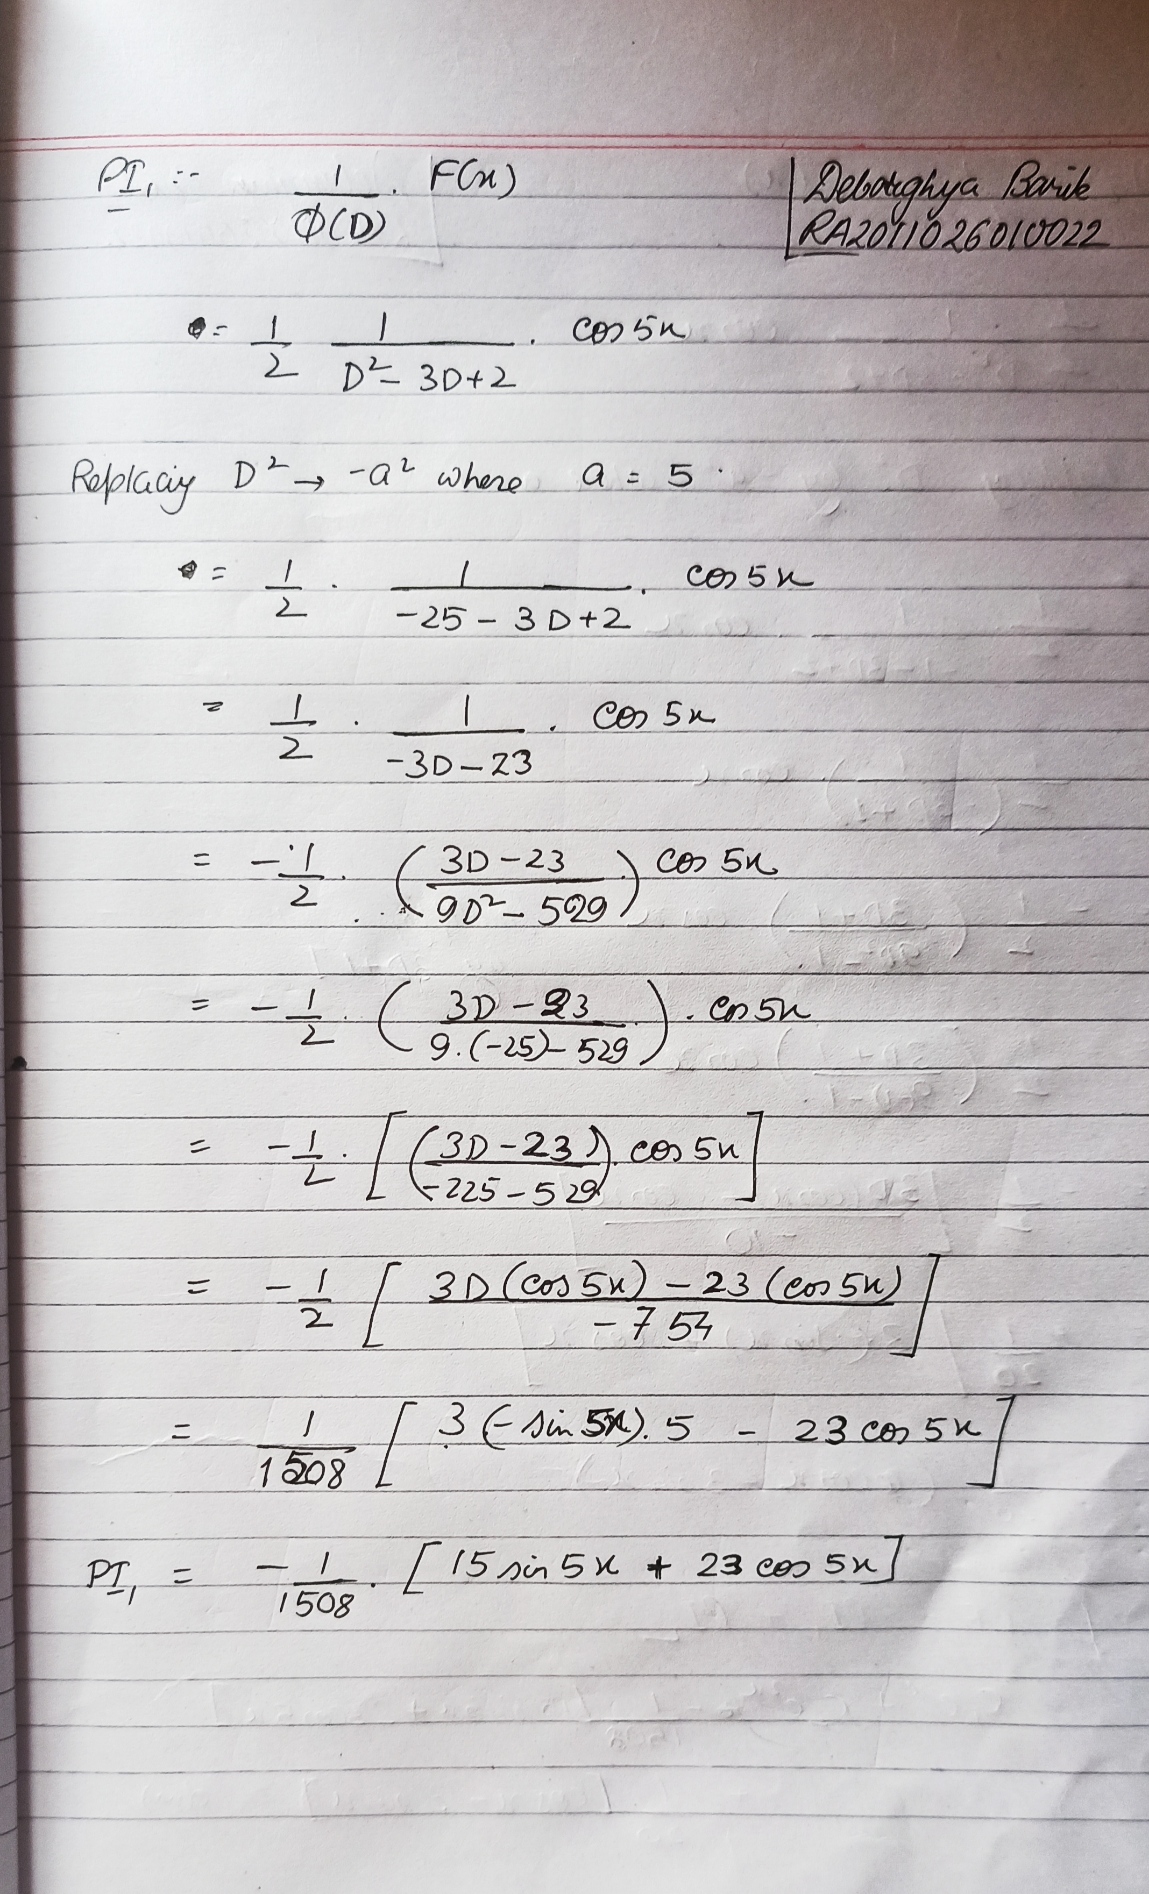 PI₁ :- 1/ϕ(D) . F(x)
Debarghya Barik
RA2011026010022
= 1/2 1/(D² - 3D+2) . cos 5x
Replacing D² → -a² where a = 5 .
= 1/2 . 1/(-25 - 3D+2) . cos 5x
= 1/2 . 1/(-3D - 23) . cos 5x
= -1/2 . ((3D - 23)/(9D² - 529)) cos 5x
= -1/2 . ((3D - 23)/(9.(-25) - 529)) . cos 5x
= -1/2 . [((3D - 23)/(-225 - 529)) . cos 5x]
= -1/2 [(3D (cos 5x) - 23 (cos 5x))/(-754)]
= 1/1508 [3 (- sin 5x). 5 - 23 cos 5x]
PI₁ = -1/1508 . [15 sin 5x + 23 cos 5x]